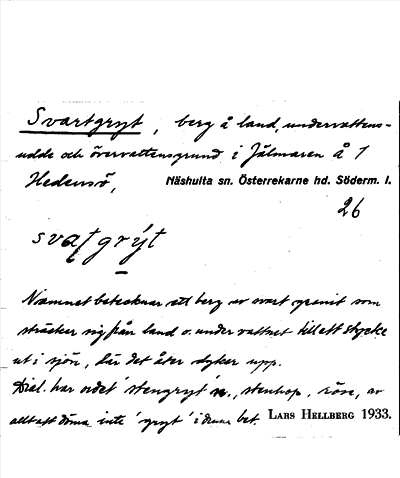 Svartgryt, berg å land, undervattens-
udde och övervattensgrund i Jälmaren å 1
Hedensö, Näshulta sn. Österrekarne hd. Söderm. l.
26
svaṭgrýt
Namnet betecknar ett berg av svart granit som
sträcker sig från land o. under vattnet till ett stycke
ut i sjön, där det åter dyker upp.
Dial. har ordet 'stengryt' n., stenhop, röse, av
allt att döma inte 'gryt' i denna bet. LARS HELLBERG 1933.